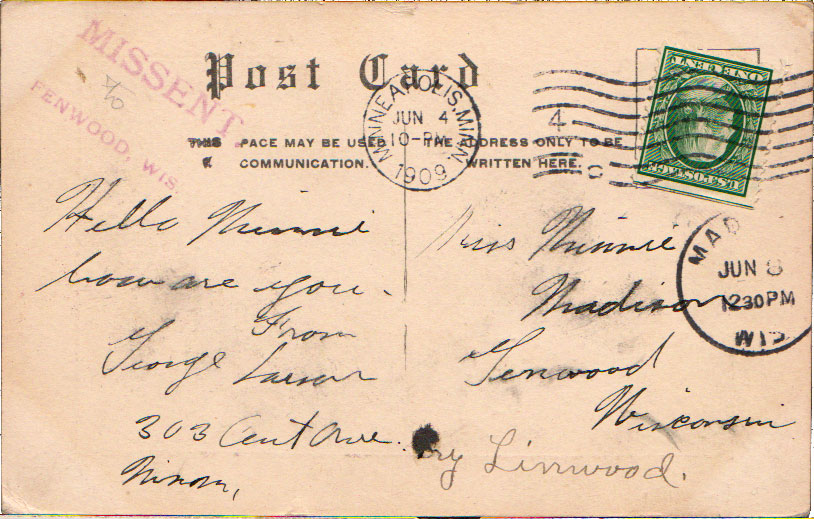 MISSENT.
FENWOOD, WIS.
Post Card
MINNEAPOLIS, MINN.
JUN 4
10-PM
1909
4
THIS PACE MAY BE USED
COMMUNICATION.
THE ADDRESS ONLY TO BE
WRITTEN HERE.
Hello Minnie
how are you.
From
George Larson
303 Cent Ave.
Miss Minnie
Madison
Fenwood
Wisconsin
Try Linwood.
MAD
JUN 8
1230PM
WIS.